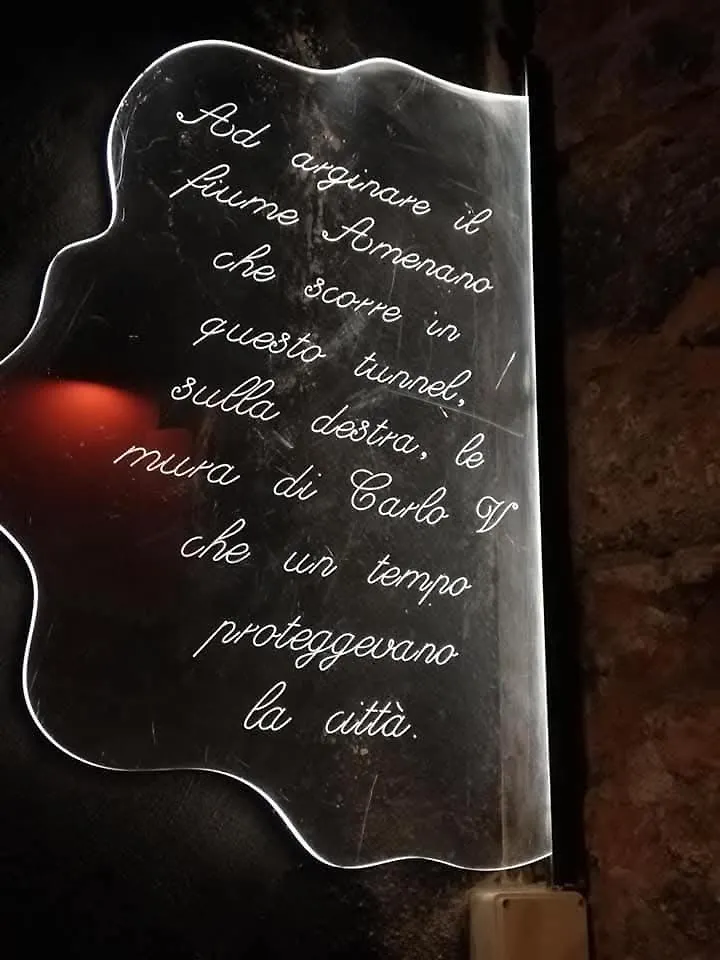 Ad arginare il
fiume Amenano
che scorre in
questo tunnel,
sulla destra, le
mura di Carlo V
che un tempo
proteggevano
la città.